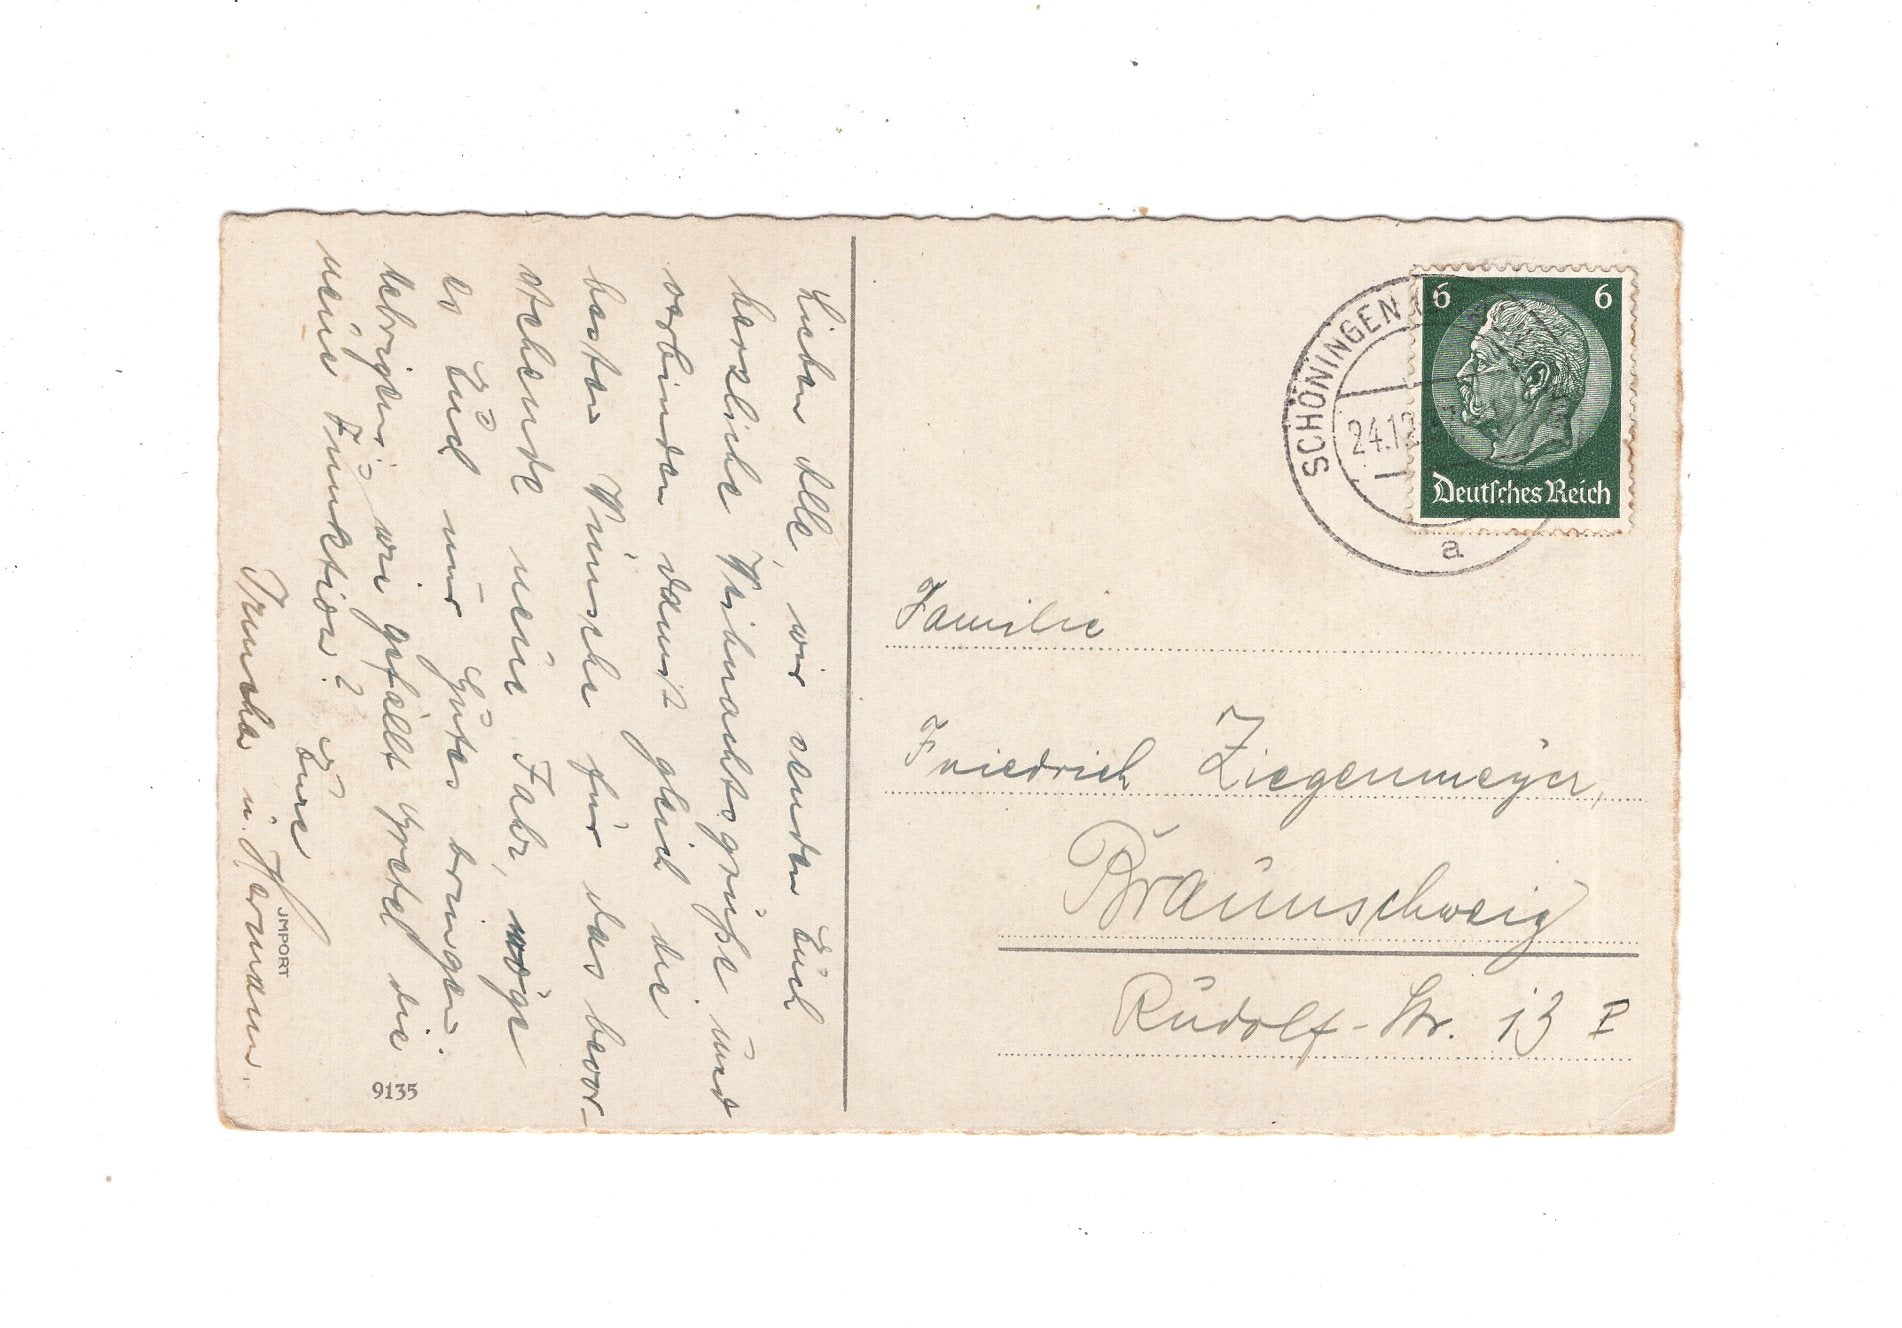 Lieben Alle, wir senden Euch
herzliche Weihnachtsgrüße und
verbinden damit gleich die
besten Wünsche für das bevor-
stehende neue Jahr, möge
es Euch nur Gutes bringen.
Uebrigens, wie gefällt Gretel die
neue Funktion? Eure
u. Hermann.
JMPORT
9135
SCHÖNINGEN
24.12
a
6 6
Deutsches Reich
Familie
Friedrich Ziegenmeyer,
Braunschweig
Rudolf-Str. 13 I